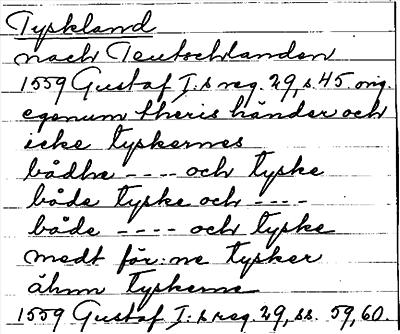 Tyskland
nach Teutschlanden
1559 Gustaf I:s reg. 29, s. 45 orig.
egenum theris händer och
icke tyskernes
bådhe ---- och tyske
både tyske och ----
både ---- och tyske
medt för:ne tysker
åhnn tyskerne
1559 Gustaf I:s reg. 29, ss. 59, 60.